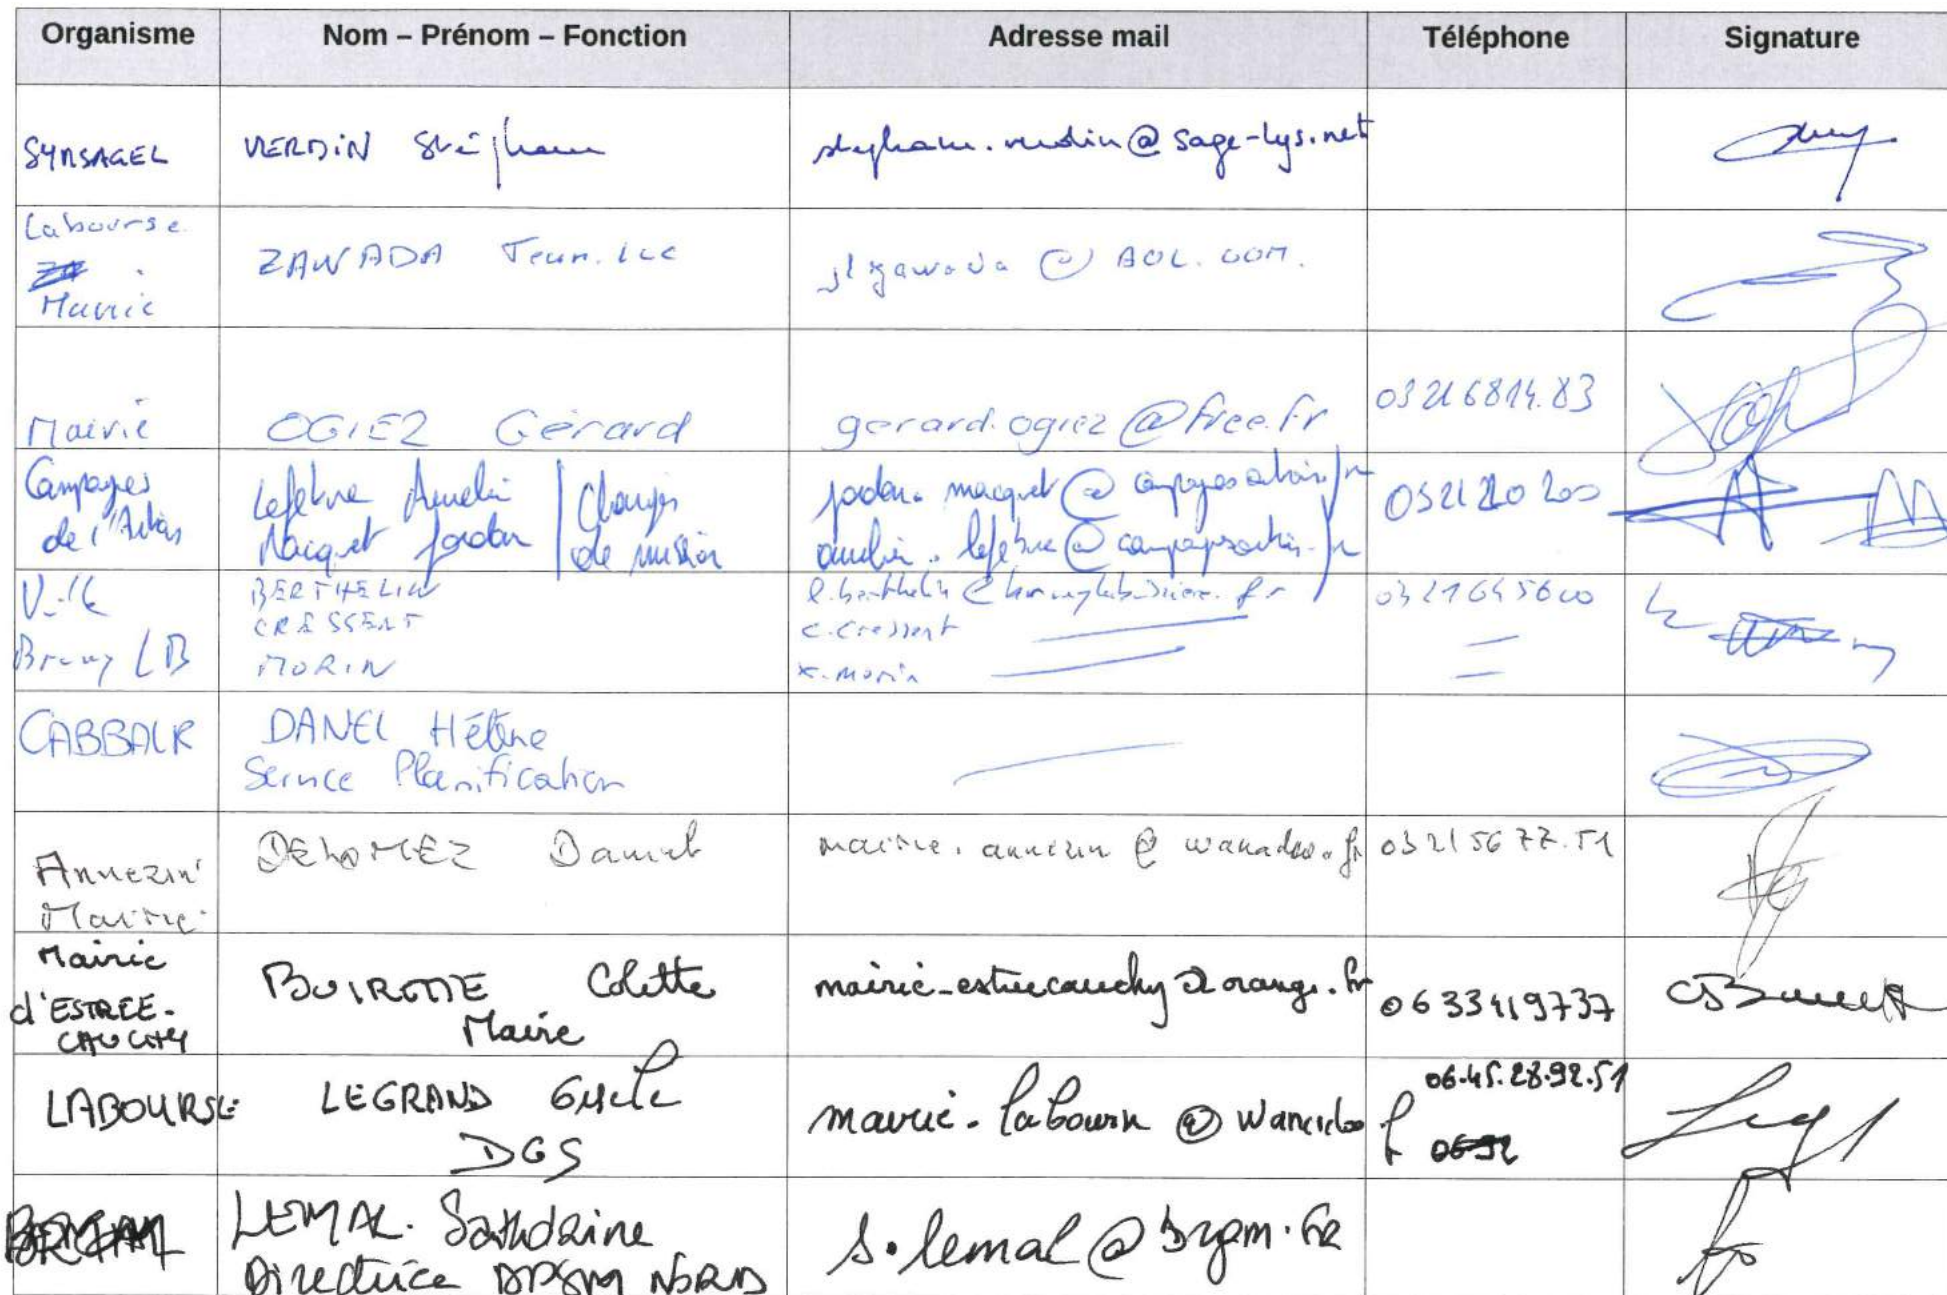 Organisme Nom – Prénom – Fonction Adresse mail Téléphone Signature
SYMSAGEL VERDIN Stéphane stephane.verdin@sage-lys.net
Labourse
Mairie
ZAWADA Jean.Luc jlzawada @ AOL.COM.
Mairie OGIEZ Gérard gerard.ogiez@free.fr 0321681483
Campagnes
de l'Artois
Lefebvre Aurélie
Macquet Jordan
Chargés
de mission
jordan.macquet@campagnesartois.fr
aurelie.lefebvre@campagnesartois.fr
Ville
Bruay LB
BERTHELIN
CRESSENT
MORIN
l.berthelin@bruaylabuissiere.fr
c.cressent
x.morin
0321645600
CABBALR DANEL Hélène
Service Planification
Annezin
Mairie
DELOMEZ Daniel mairie.annezin@wanadoo.fr 03215677.51
Mairie
d'ESTREE-
CAUCHY
Colette
Maire
mairie-estreecauchy@orange.fr 0633419737
LABOURSE LEGRAND Gisèle
DGS
mairie.labourse @ wanadoo fr 06.45.28.92.51
LEMAL. Sandrine
Directrice NORD
s.lemal@brgm.fr